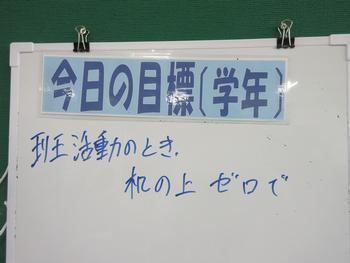 今日の目標(学年)
班活動のとき.
机の上 ゼロで